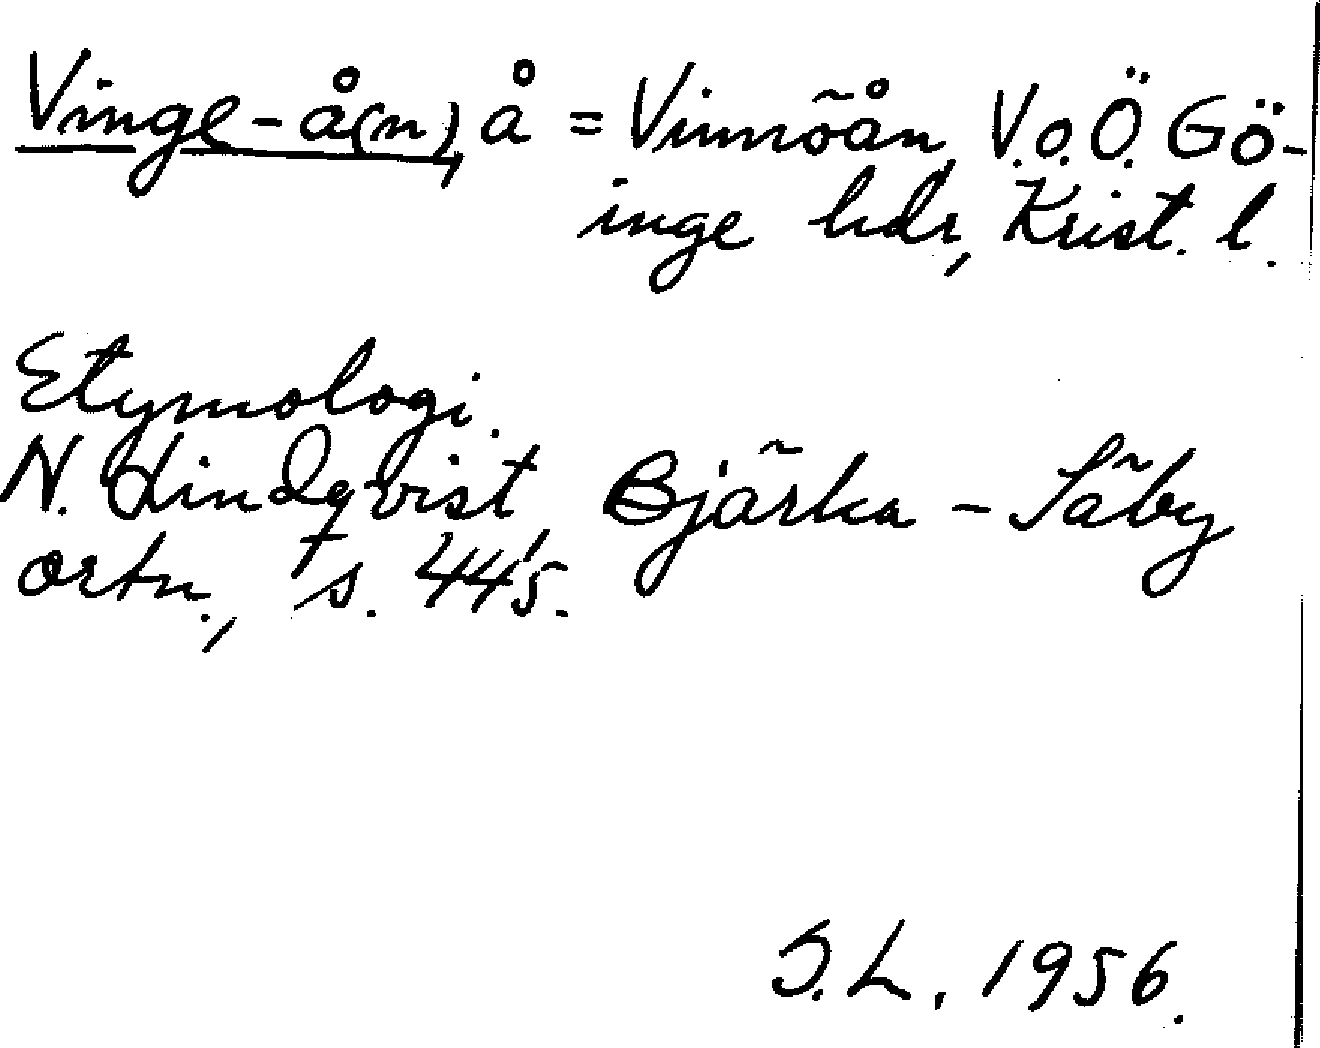 Vinge-å(n), å = Vinnöån, V. o. Ö. Gö-
inge hdr, Krist. l.
Etymologi.
N. Lindqvist, Bjärka-Säby
ortn., s. 445.
S.L. 1956.